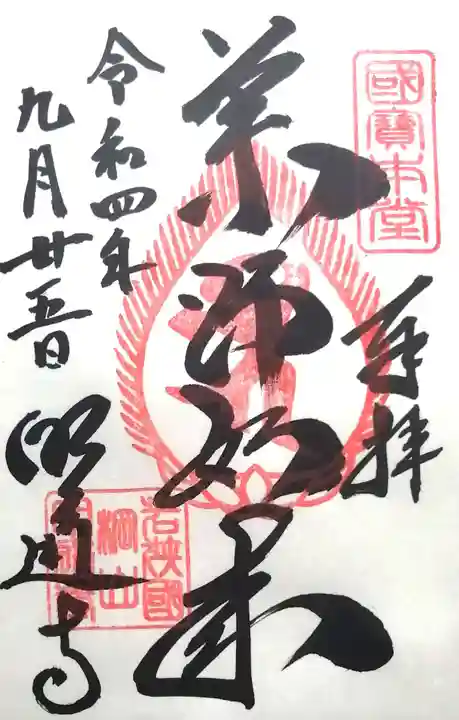 國寶本堂
奉拝
薬師如来
令和四年
九月廿五日
明通寺
若狭國
棡山